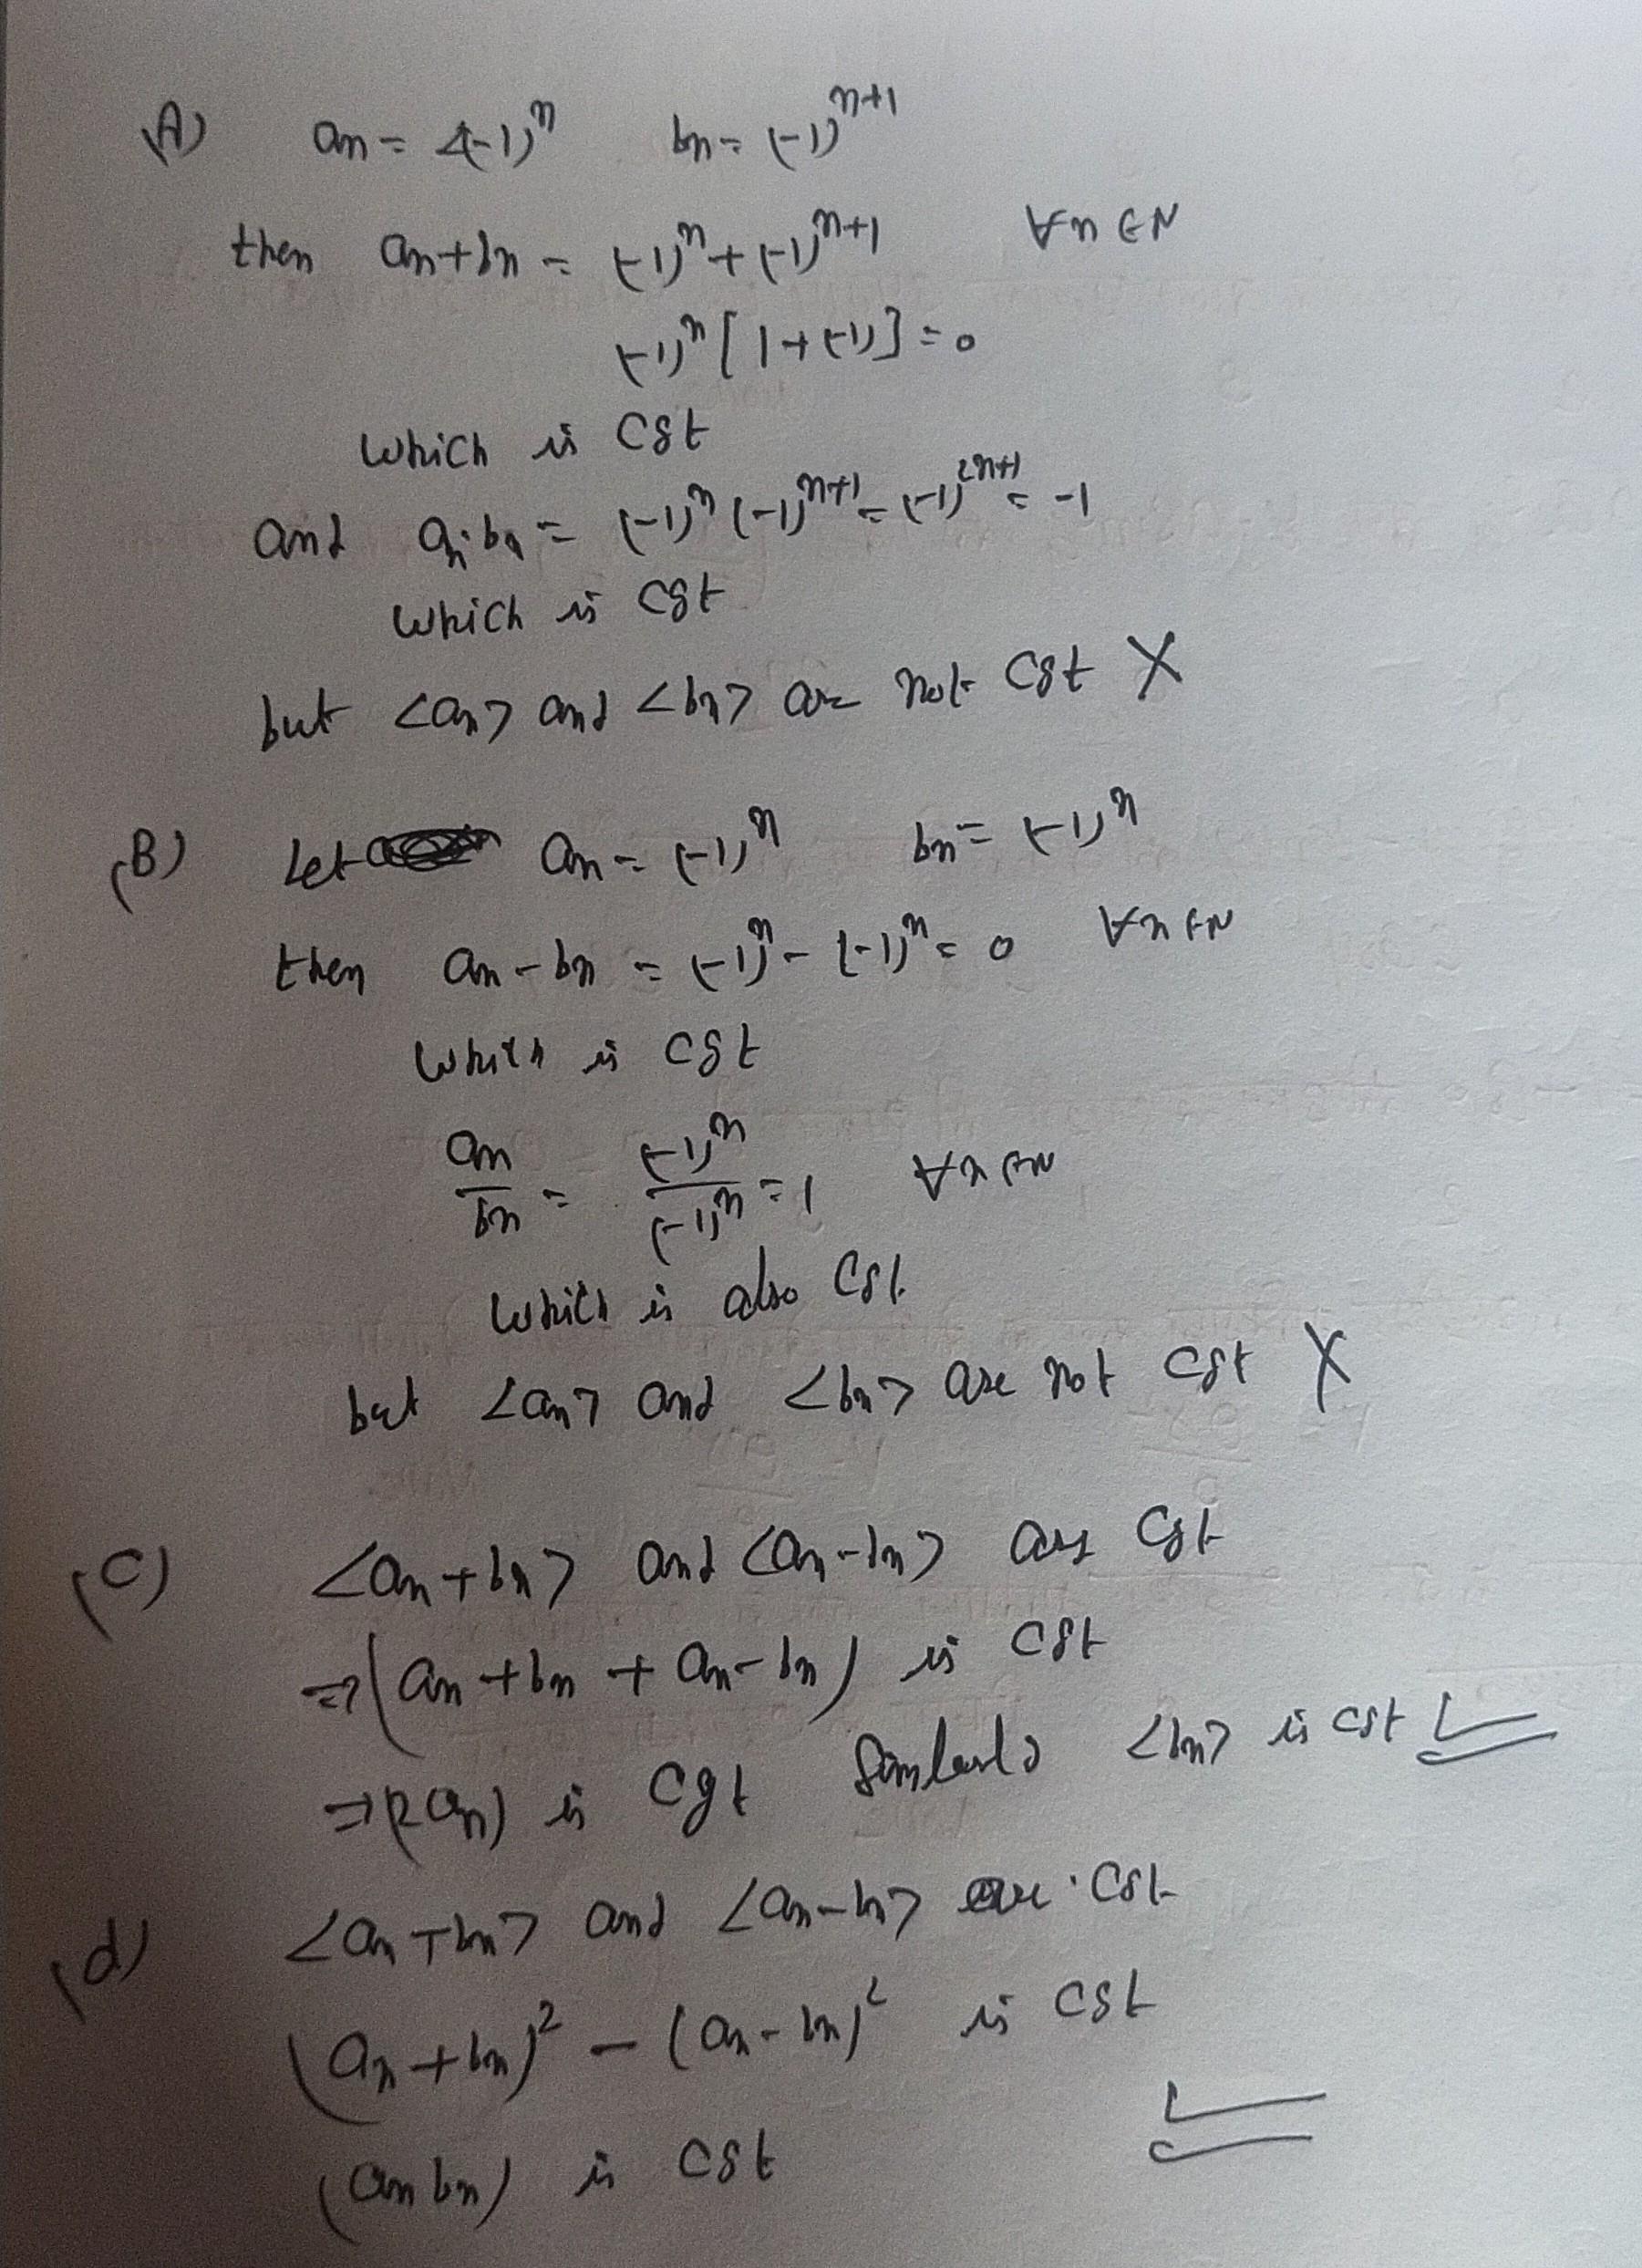 (A) an = <(-1)^n bn = (-1)^n+1
then an+bn = (-1)^n + (-1)^n+1 ∀n∈N
(-1)^n [1+(-1)] = 0
which is Cgt
and an·bn = (-1)^n (-1)^n+1 = (-1)^2n+1 = -1
which is cgt
but <an> and <bn> are not Cgt X
(B) Let an = (-1)^n bn = (-1)^n
then an - bn = (-1)^n - (-1)^n = 0 ∀n∈N
which is cgt
an/bn = (-1)^n/(-1)^n = 1 ∀n∈N
which is also Cgt
but <an> and <bn> are not Cgt X
(C) <an+bn> and <an-bn> are Cgt
⇒ (an+bn + an-bn) is cgt
⇒ (2an) is Cgt <bn> is cgt
(d) <an+bn> and <an-bn> are Cgt
(an+bn)^2 - (an-bn)^2 is cgt
(an bn) is cgt